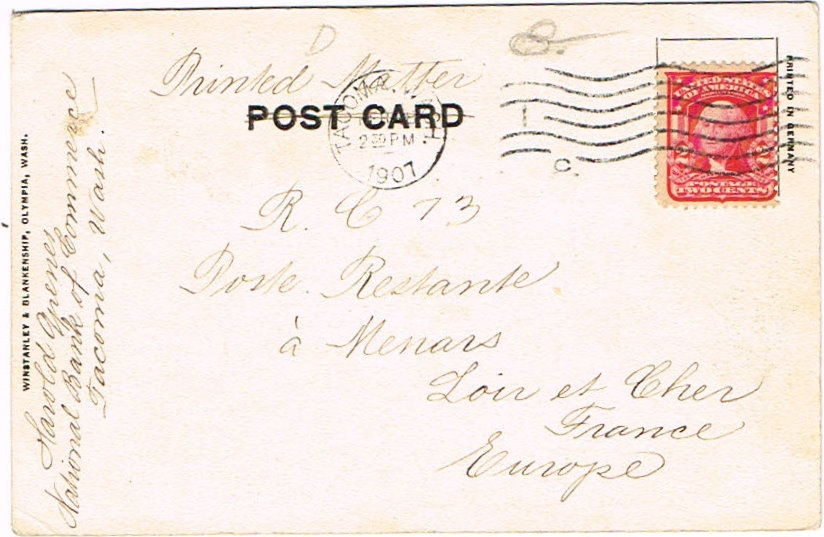 Printed Matter
POST CARD
TACOMA
2 30 PM
1907
C.
UNITED STATES
OF AMERICA
POSTAGE
TWO CENTS
PRINTED IN GERMANY
R. C 73
Poste Restante
à Menars
Loir et Cher
France
Europe
WINSTANLEY & BLANKENSHIP, OLYMPIA, WASH.
Harold
National Bank of Commerce
Tacoma, Wash.